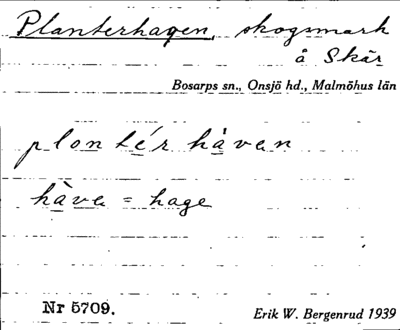 Planterhagen, skogsmark
å Skår
Bosarps sn., Onsjö hd., Malmöhus län
plontér håven
håva = hage
Nr 5709.
Erik W. Bergenrud 1939